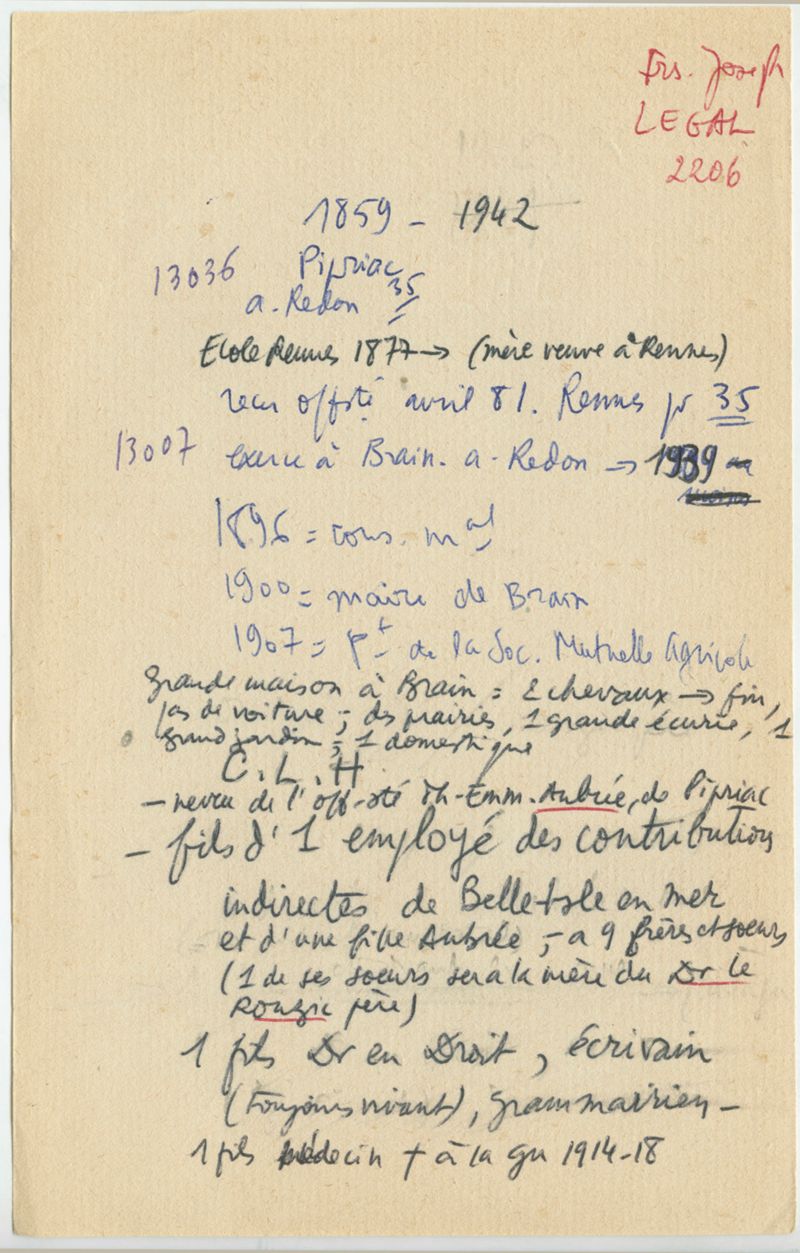 Frs. Joseph
LEGAL
2206
1859 - 1942
13036 Pipriac
a. Redon 35
Ecole Rennes 1877 → (mère veuve à Rennes)
recu offité avril 81. Rennes pr 35
13007 exerce à Brain. a. Redon → 1939
1896 = cons. mal
1900 = maire de Brain
1907 = Pt de la Soc. Mutuelle Agricole
grande maison à Brain = 2 chevaux → fin,
pas de voiture ; des prairies, 1 grande écurie, 1
grand jardin ; 1 domestique
C.L.H
- neveu de l'off-sté Th-Emm. Aubrée, de Pipriac
- fils d'1 employé des contributions
indirectes de Belle-Isle en mer
et d'une fille Aubrée ; - a 9 frères et soeurs
(1 de ses soeurs sera la mère du Dr le
Rouzic père)
1 fils Dr en Droit, écrivain
(toujours vivant), grammairien -
1 fils médecin † à la gu 1914-18